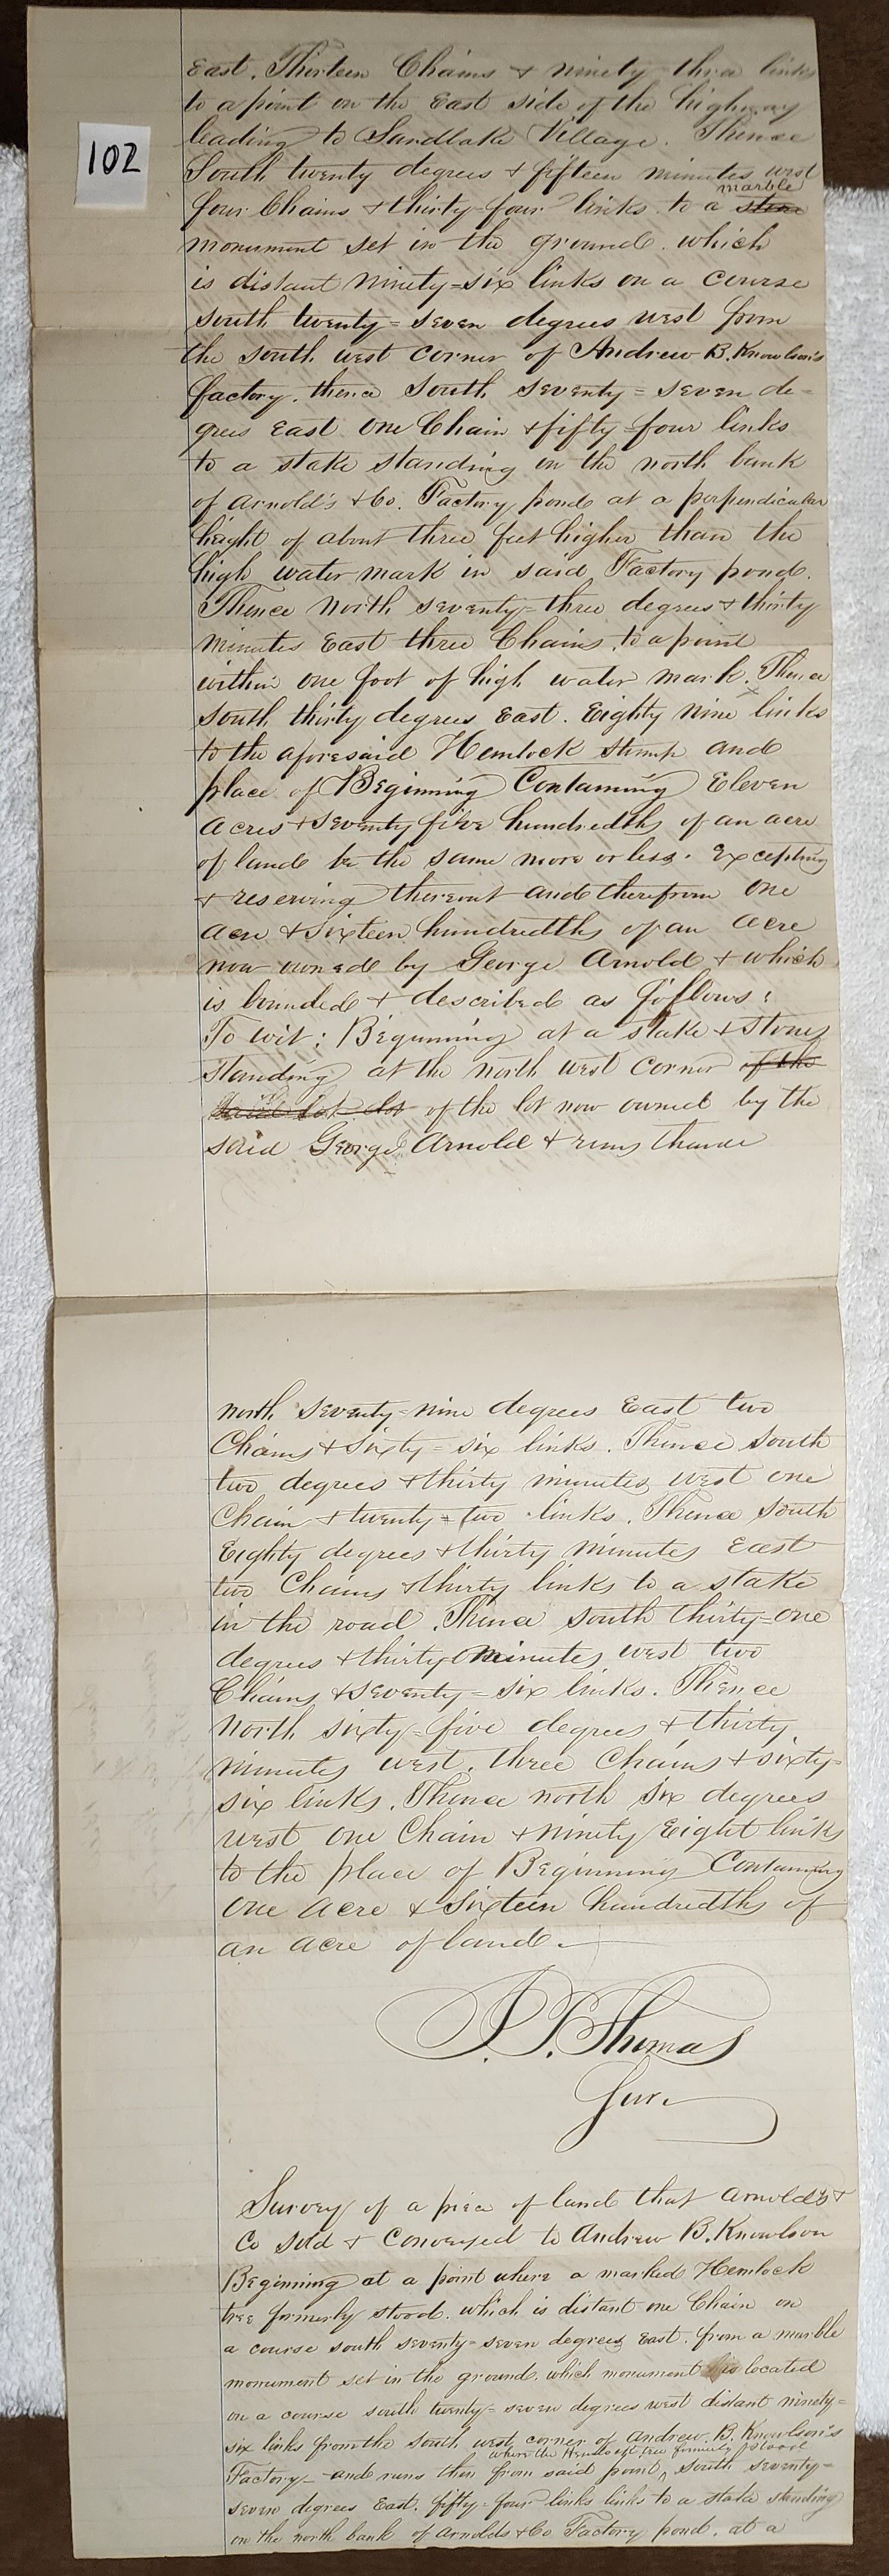 102
East. Thirteen Chains & ninety three links
to a point on the East side of the highway
leading to Sandlake Village. Thence
South twenty degrees & fifteen minutes west
marble
four Chains & thirty-four links to a stone
monument set in the ground. which
is distant ninety=six links on a course
south twenty=seven degrees west from
the south west corner of Andrew B. Knowlson's
factory. thence South seventy=seven de-
grees East one Chain & fifty-four links
to a stake standing on the north bank
of Arnold's & Co. Factory pond at a perpendicular
height of about three feet higher than the
high water mark in said Factory pond.
Thence North seventy=three degrees & thirty
minutes East three Chains, to a point
within one foot of high water mark. Thence
South thirty degrees East. Eighty nine links
to the aforesaid Hemlock stump and
place of Beginning Containing Eleven
acres & seventy five hundredths of an acre
of land be the same more or less. Excepting
& reserving thereout and therefrom one
acre & sixteen hundredths of an acre
now owned by George Arnold & which
is bounded & described as follows:
To wit: Beginning at a stake & stones
standing at the north west corner of the
of the lot now owned by the
said George Arnold & runs thence
north seventy=nine degrees East two
Chains & sixty=six links. Thence South
two degrees & thirty minutes west one
Chain & twenty=two links. Thence South
Eighty degrees & thirty minutes East
two Chains & thirty links to a stake
in the road. Thence South thirty=one
degrees & thirty minutes west two
Chains & seventy=six links. Thence
North sixty=five degrees & thirty
minutes west. three Chains & sixty=
six links. Thence north six degrees
west one Chain & ninety Eight links
to the place of Beginning Containing
one acre & sixteen hundredths of
an acre of land.
Thomas
Sur.
Survey of a piece of land that Arnold's &
Co sold & Conveyed to Andrew B. Knowlson
Beginning at a point where a marked Hemlock
tree formerly stood. which is distant one Chain on
a course south seventy=seven degrees East. from a marble
monument set in the ground. which monument is located
on a course south twenty=seven degrees west distant ninety=
six links from the south west corner of Andrew B. Knowlson's
where the Hemlock tree formerly stood
Factory and runs then from said point ^ south seventy=
seven degrees East. fifty=four links links to a stake standing
on the north bank of Arnolds & Co Factory pond. at a